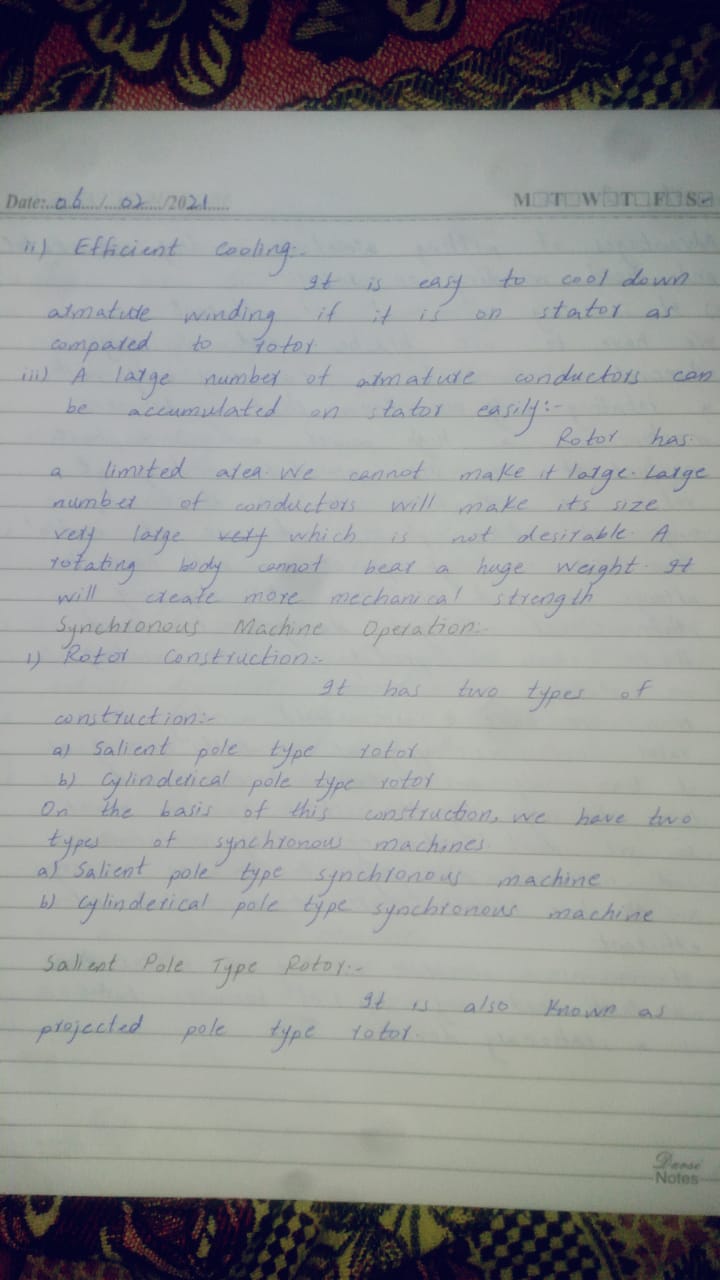 Date:..06../..02../2021.... M T W T F S
ii) Efficient Cooling:-
It is easy to cool down
armature winding if it is on stator as
compared to rotor
iii) A large number of armature conductors can
be accumulated on stator easily:-
Rotor has
a limited area. We cannot make it large. Large
number of conductors will make its size
very large very which is not desirable. A
rotating body cannot bear a huge weight. It
will create more mechanical strength
Synchronous Machine Operation:-
i) Rotor Construction:-
It has two types of
construction:-
a) Salient pole type rotor
b) Cylinderical pole type rotor
On the basis of this construction, we have two
types of synchronous machines
a) Salient pole type synchronous machine
b) Cylinderical pole type synchronous machine
Salient Pole Type Rotor:-
It is also known as
projected pole type rotor.
Notes